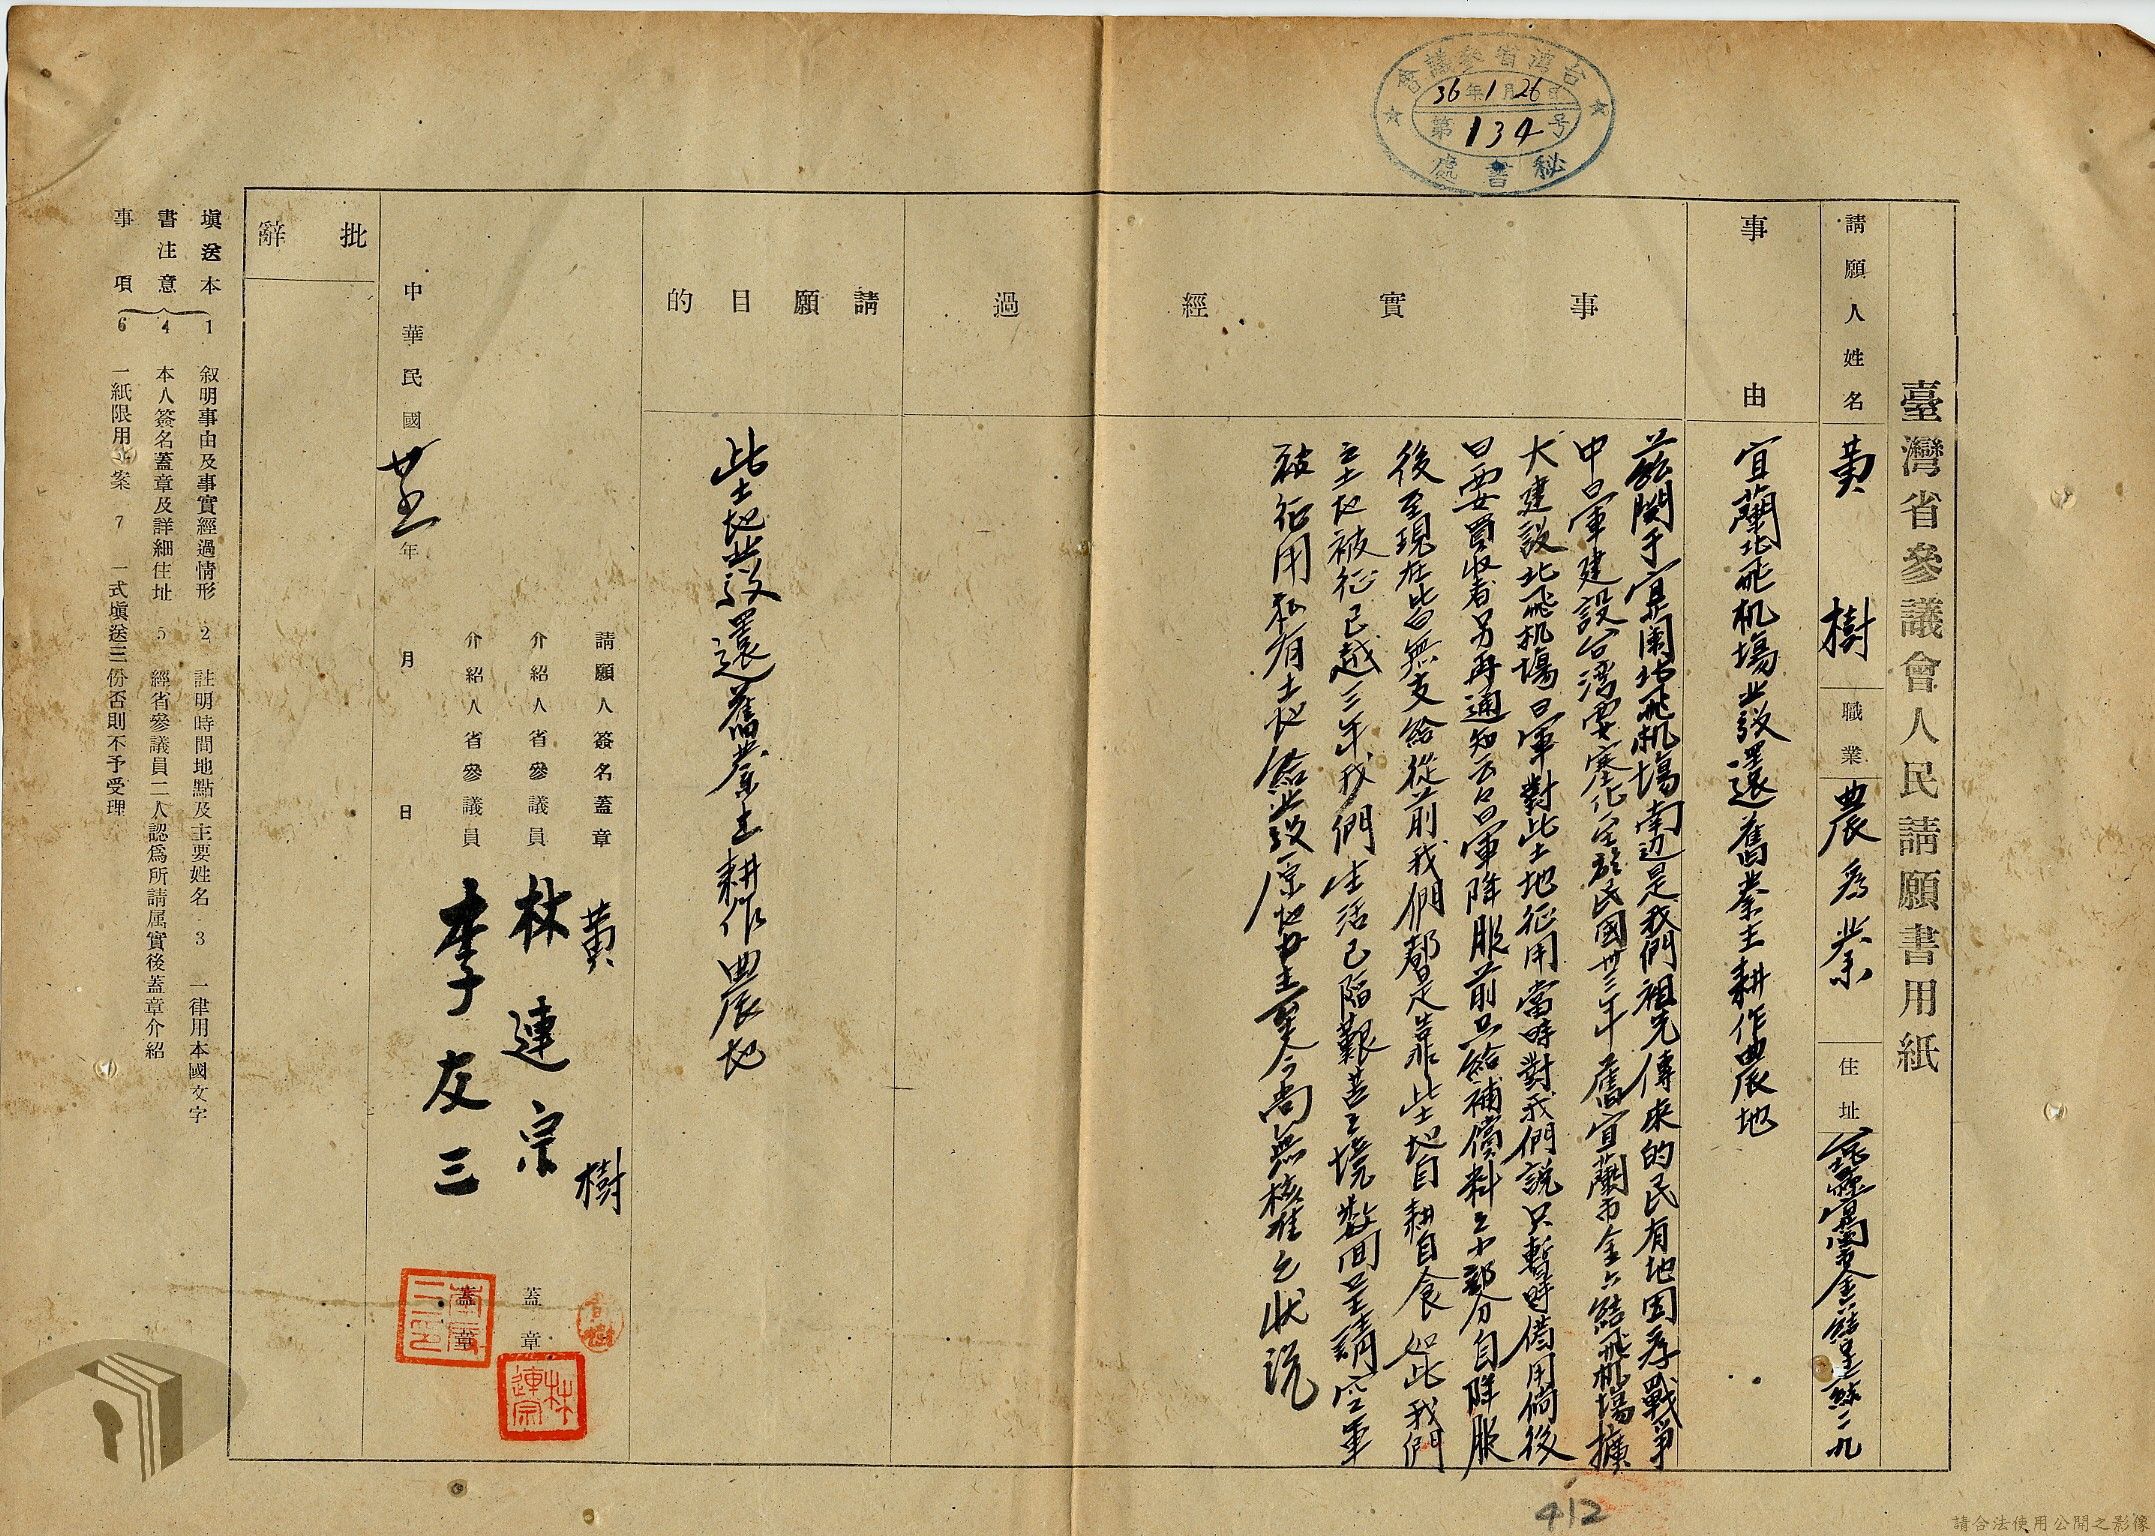 台灣省參議會
36年1月26日
第134号
秘書處
臺灣省參議會人民請願書用紙
請願人姓名 黃樹 職業 農為業 住址
事由 宜蘭北飛机場也設還舊業主耕作農地
事實經過
茲関于宜蘭北飛机場南边是我們祖先傳來的民有地因為戰爭
中日軍建設台湾要塞化至於民國卅三年舊宜蘭市金六結飛机場擴
大建設北飛机場日軍對此土地征用當時對我們說只暫時借用倘後
日要買收者另再通知云云日軍降服前只給補償料之小部分自降服
後至現在皆無支給從前我們都是靠此土地自耕自食如此我們
之土地被征已越三年我們生活已陷艱苦之境數间呈請空軍
被征用私有土地給也設原地主至今尚無核准之狀況
請願目的
此土地也設還舊業主耕作農地
請願人簽名蓋章 黃樹
介紹人省參議員 林連宗 蓋章
林連宗
介紹人省參議員 李友三 蓋章
李友三印
中華民國 年 月 日
批辭
填送本書注意事項
1 叙明事由及事實經過情形 2 註明時間地點及主要姓名 3 一律用本國文字
4 本人簽名蓋章及詳細住址 5 經省參議員二人認為所請属實後蓋章介紹
6 一紙限用一案 7 一式填送三份否則不予受理
412
請合法使用公開之影像